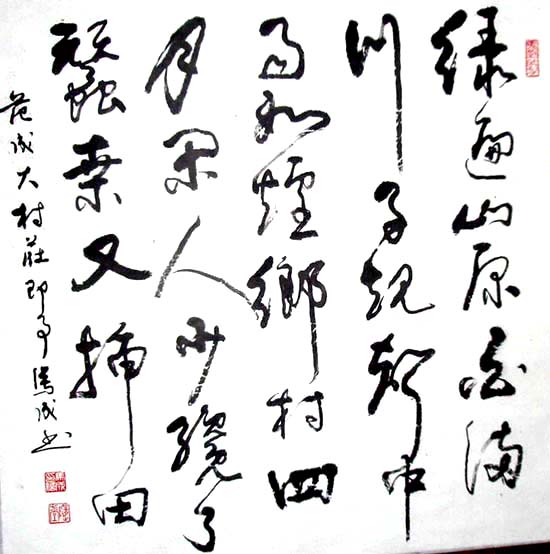 绿遍山原白满
川子规声中
雨如煙鄉村四
月闲人少纔了
蠶桑又插田
范成大村莊即事成书